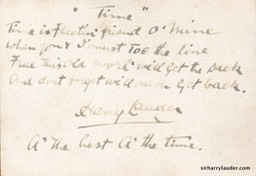 " Time "
Time is fleetin' friend O' Mine
When you & I must TOE the line
Frae this old worl' we'll Get the Sack
And don't forget we'll never Get back.
Harry Lauder
A' the best A' the time.
sirharrylauder.com